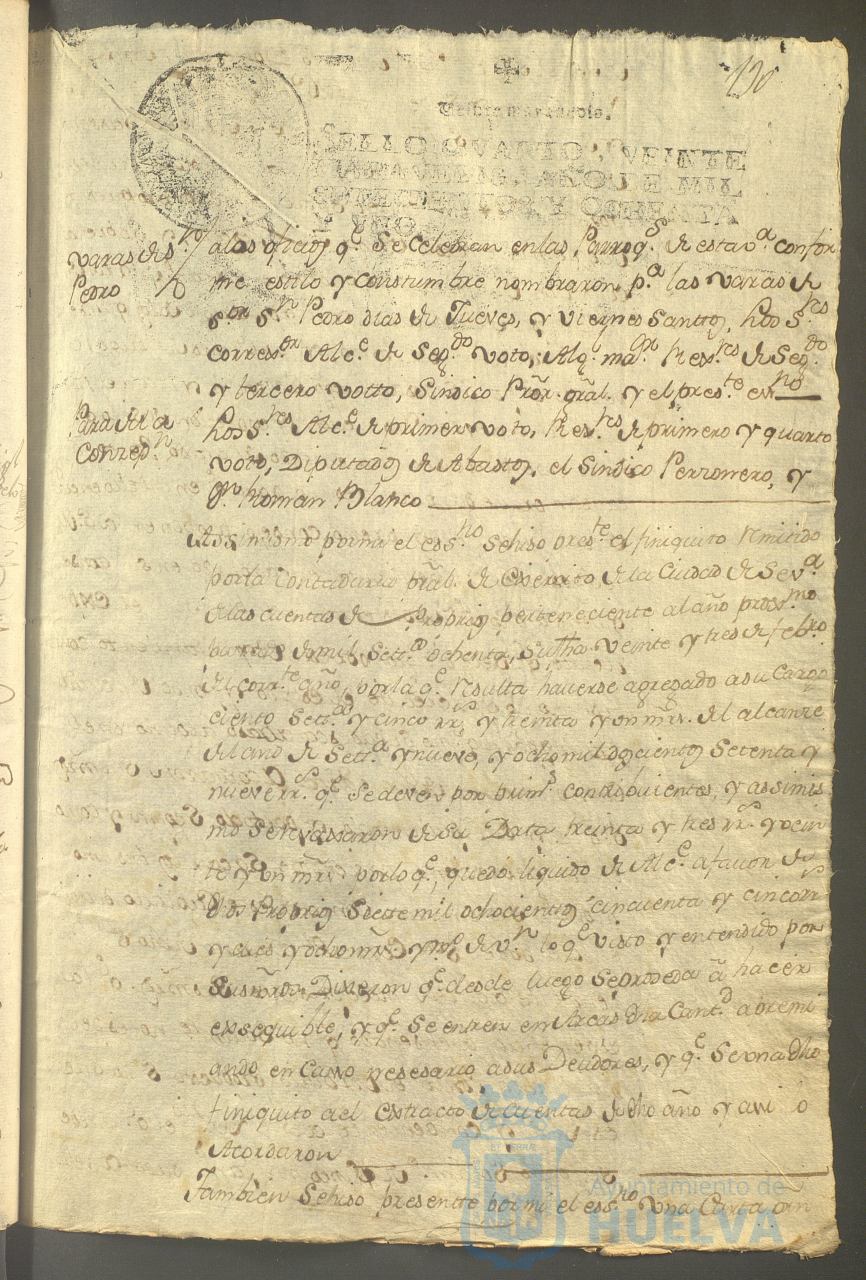 130
Veinte maravedis.
SELLO QVARTO, VEINTE
MARAVEDIS, AÑO DE MIL
SETECIENTOS Y OCHENTA
Y UNO.
varas de Sn
Pedro
alos ofizios qe Se Celebran enlas Parroqs de esta va confor
me estilo y constumbre nombraron pa las varas de
Sor Sn Pedro dias de Jueves, y Viernes Santto, hos Sres
Corresor Alce de Segdo voto, Alqe maor Rexres de Segdo
y tercero votto, Sindico Pror gral. y el preste essno
Para de la
Conzepn
hos Sres Alce de primer voto, Rexres de primero y quarto
voto, Diputados de Abastos, el Sindico Perzonero, y
Dn Román Blanco
Assimismo pormi el essno sehiso preste el finiquito Remitido
porla Contaduria pral. de Exercito, de la Ciudad de Seva
de las cuentas de Proprios perteneciente al año proxmo
pasado de mil Setts ochenta, su fha Veinte y tres de febro
del corrte año, por la qe Resulta haverse agregado a su Cargo
ciento Setta y cinco rrs y treinta y un mrs. del alcanze
del año de Setta y nueve, y ocho mil doscientos Setenta y
nueve rrs qe Sedeven por prims contribuientes, y assimis
mo Se revajaron de Su Data treinta y tres rrs y vein
te y un mrs porlo qe, quedo liquido de Alce afavor de
dhos Proprios Siette mil ochocientos cincuenta y cinco rrs
y dies y ocho mrs. y mo de vn lo qe visto y entendido por
Sus mrds Dixeron qe desde luego Seproceda á hacer
exsequible, y qe Se entren en Arcas dha Cantd apremi
ando, en Casso nesesario asus Deudores, y qe Seuna dho
finiquito ael extracto de Cuentas de dho año y assi lo
Acordaron
Tambien Sehiso presentte por mi el essno una Carta orn
Ayuntamiento de
HUELVA